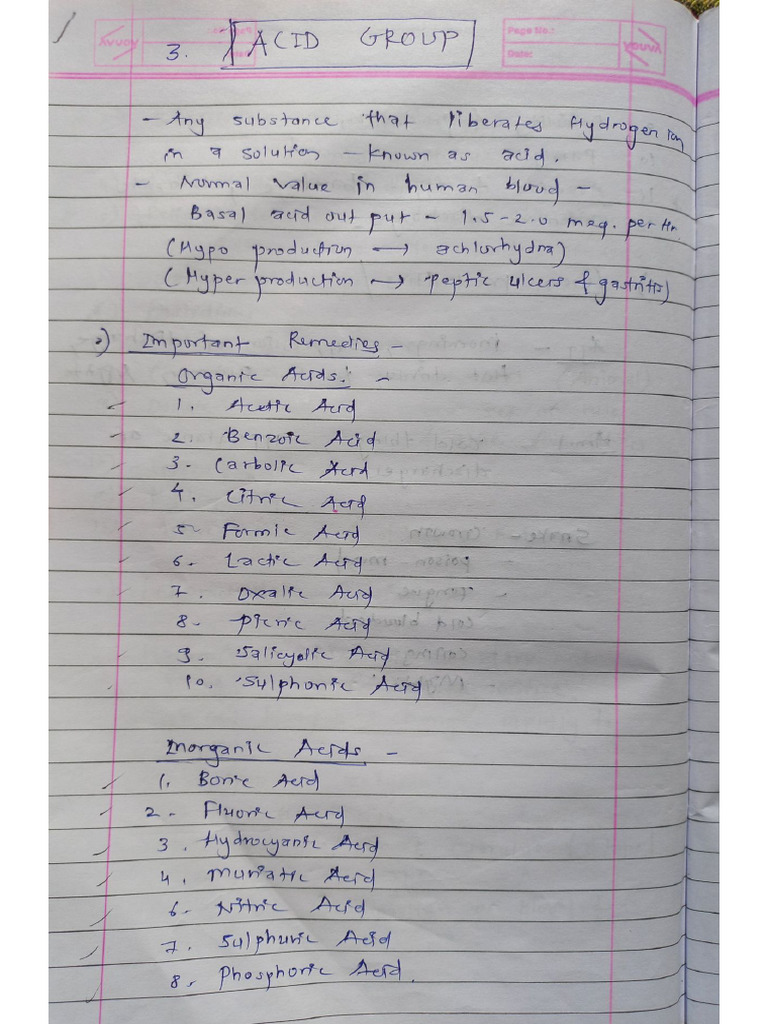 3. ACID GROUP
Page No.:
Date:
- Any substance that liberates Hydrogen ion
in a solution - known as acid.
- Normal value in human blood -
Basal acid out put - 1.5-2.0 meq. per Hr.
(Hypo production → achlorhydra)
(Hyper production → peptic ulcers & gastritis)
Important Remedies -
Organic Acids: -
1. Acetic Acid
2. Benzoic Acid
3. Carbolic Acid
4. Citric Acid
5- Formic Acid
6- Lactic Acid
7. Oxalic Acid
8- Picric Acid
9. Salicylic Acid
10. Sulphonic Acid
Inorganic Acids -
1. Boric Acid
2- Fluoric Acid
3. Hydrocyanic Acid
4. Muriatic Acid
6- Nitric Acid
7. Sulphuric Acid
8. Phosphoric Acid.